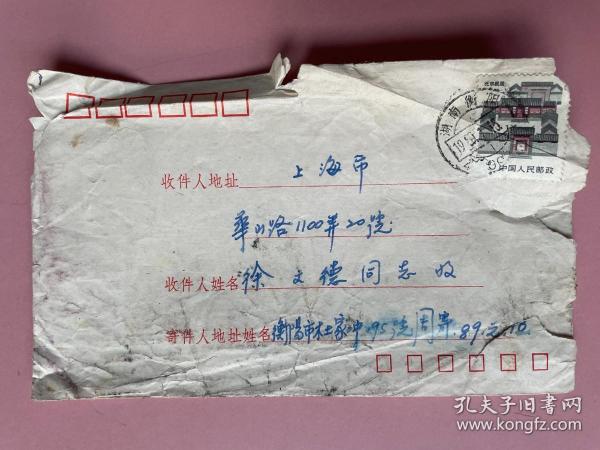 北京民居
中国人民邮政
湖南
收件人地址 上海市
华山路1100弄20號
收件人姓名 徐文德同志收
寄件人地址姓名 衡陽市杜家冲 95号周寄.89.元.10
孔夫子旧书网
www.kongfz.com